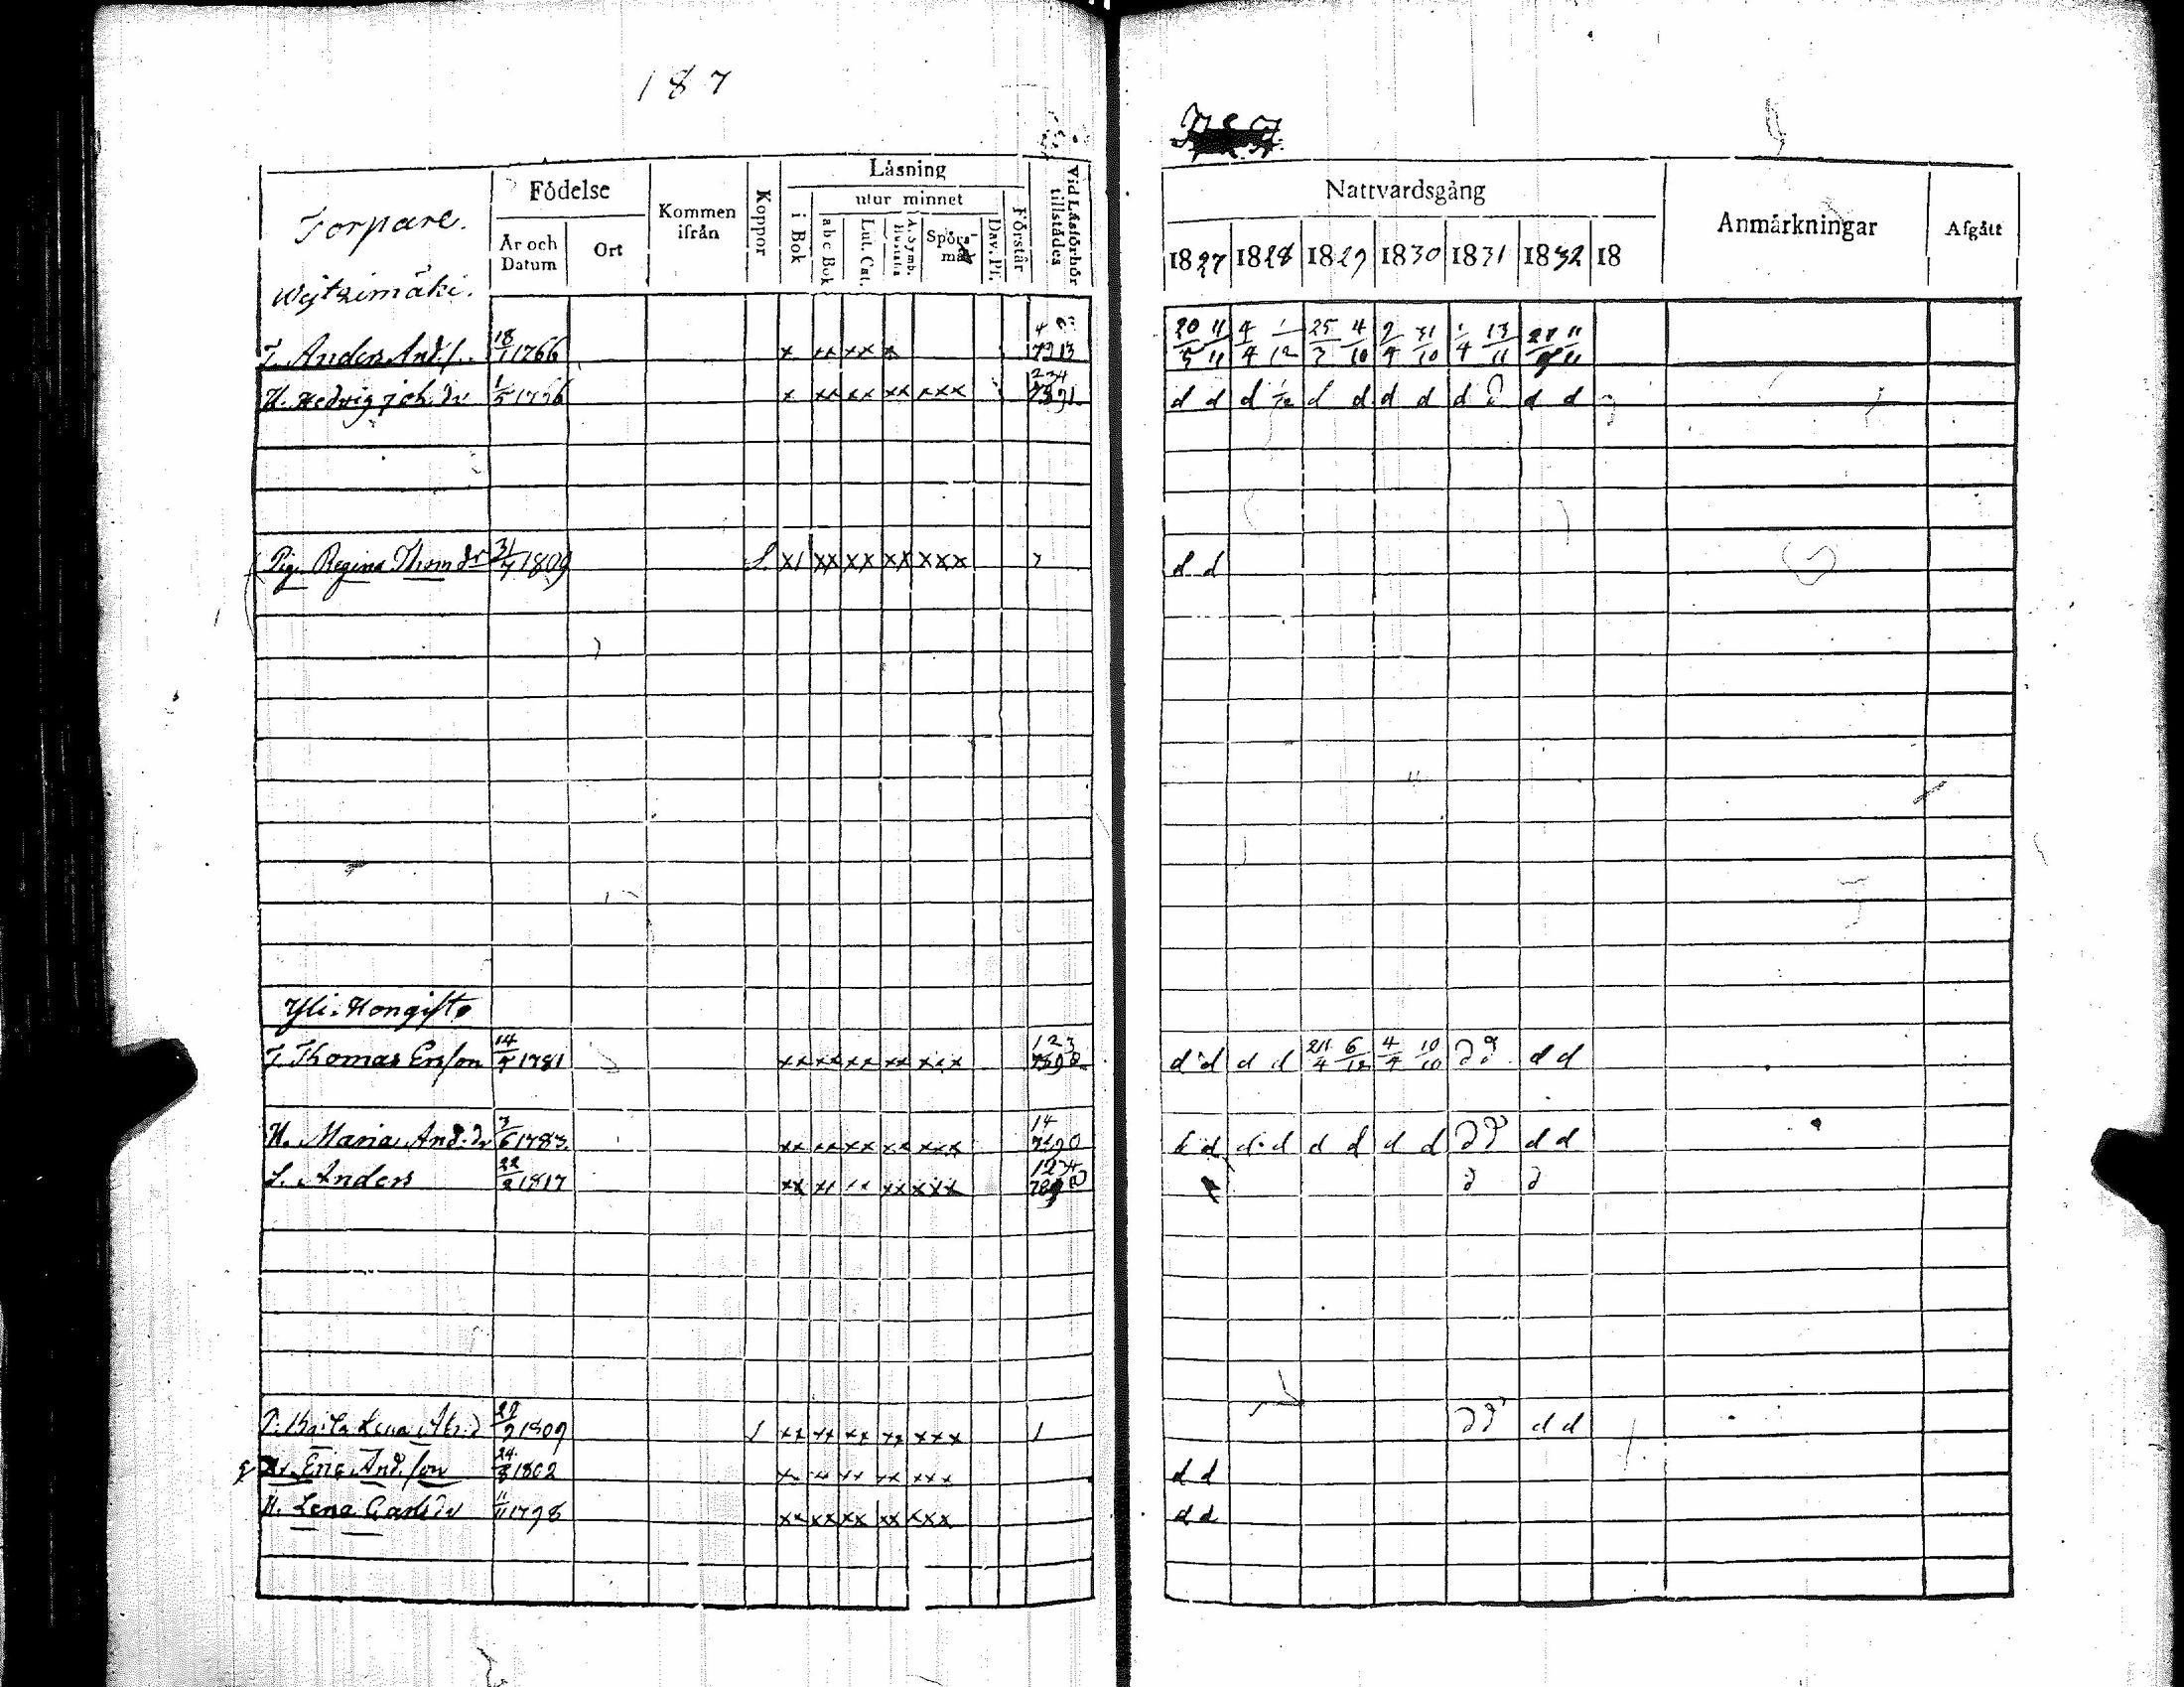 187
Torpare.
Födelse
År och Datum
Ort
Kommen ifrån
Koppor
Läsning
i Bok
utur minnet
abc Bok
Lut. Cat.
A. Symb. Hustafla
Spörsmål
Dav. Ps.
Förstår
Vid Läsförhör tillstådes
Nattvardsgång
1827 1828 1829 1830 1831 1832 18
Anmärkningar
Afgått
T. Anders And.s. 18/1 1766 x xx xx x 20/5 11/11 4/4 1/12 25/3 4/10 2/4 31/10 1/4 13/11
H. Hedvig Joh. dr x xx xx xx xxx d d d 1/12 d d d d d d d d
Pig. Regina Thom dr 31/7 1809 xx xx xx xxx d d
Yli-Hongisto
T. Thomas Ersson 14/7 1781 xx xx xx xx xxx 123 d d d d 6/12 4/4 10/10 d d d d
H. Maria And. dr 7/6 1783. xx xx xx xx xxx 14 d d d d d d d d d d d d
S. Anders 22/2 1817 xx xx xx xx xxx d d
Lena 1809 xx xx xx xx xxx 1 d d d d
Eric And.son 24/8 1802 xx xx xx xx xxx d d
H. Lena Carls dr 11/11 1798 xx xx xx xx xxx d d